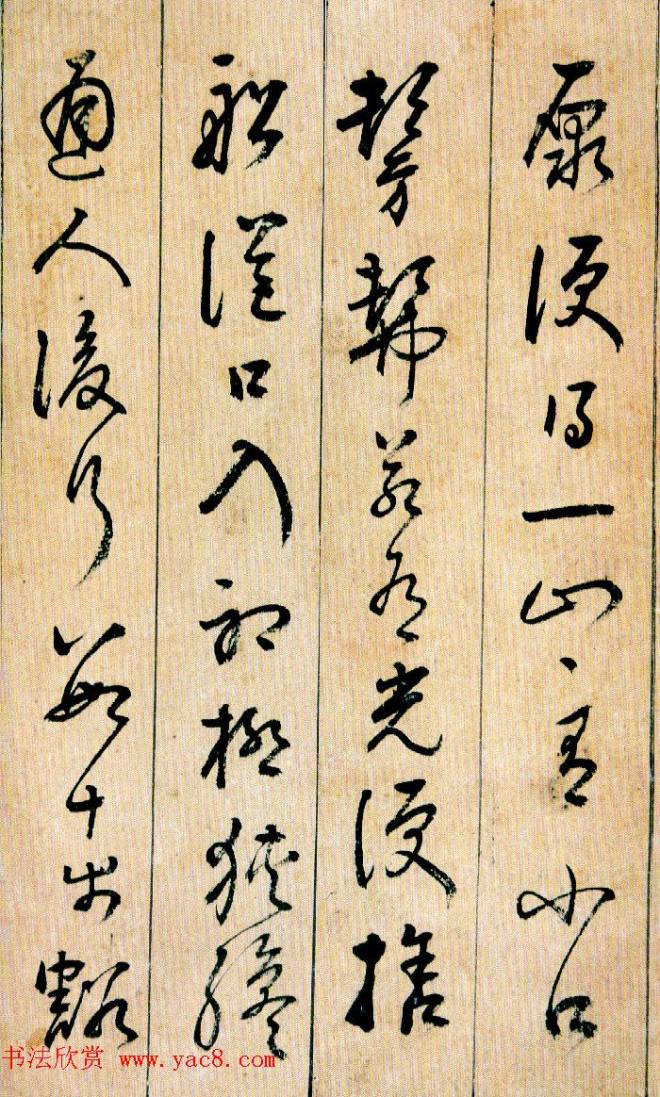 原便得一山〻有小口
髣髴若有光便捨
船從口入初極狹纔
通人復行數十步豁
书法欣赏 www.yac8.com